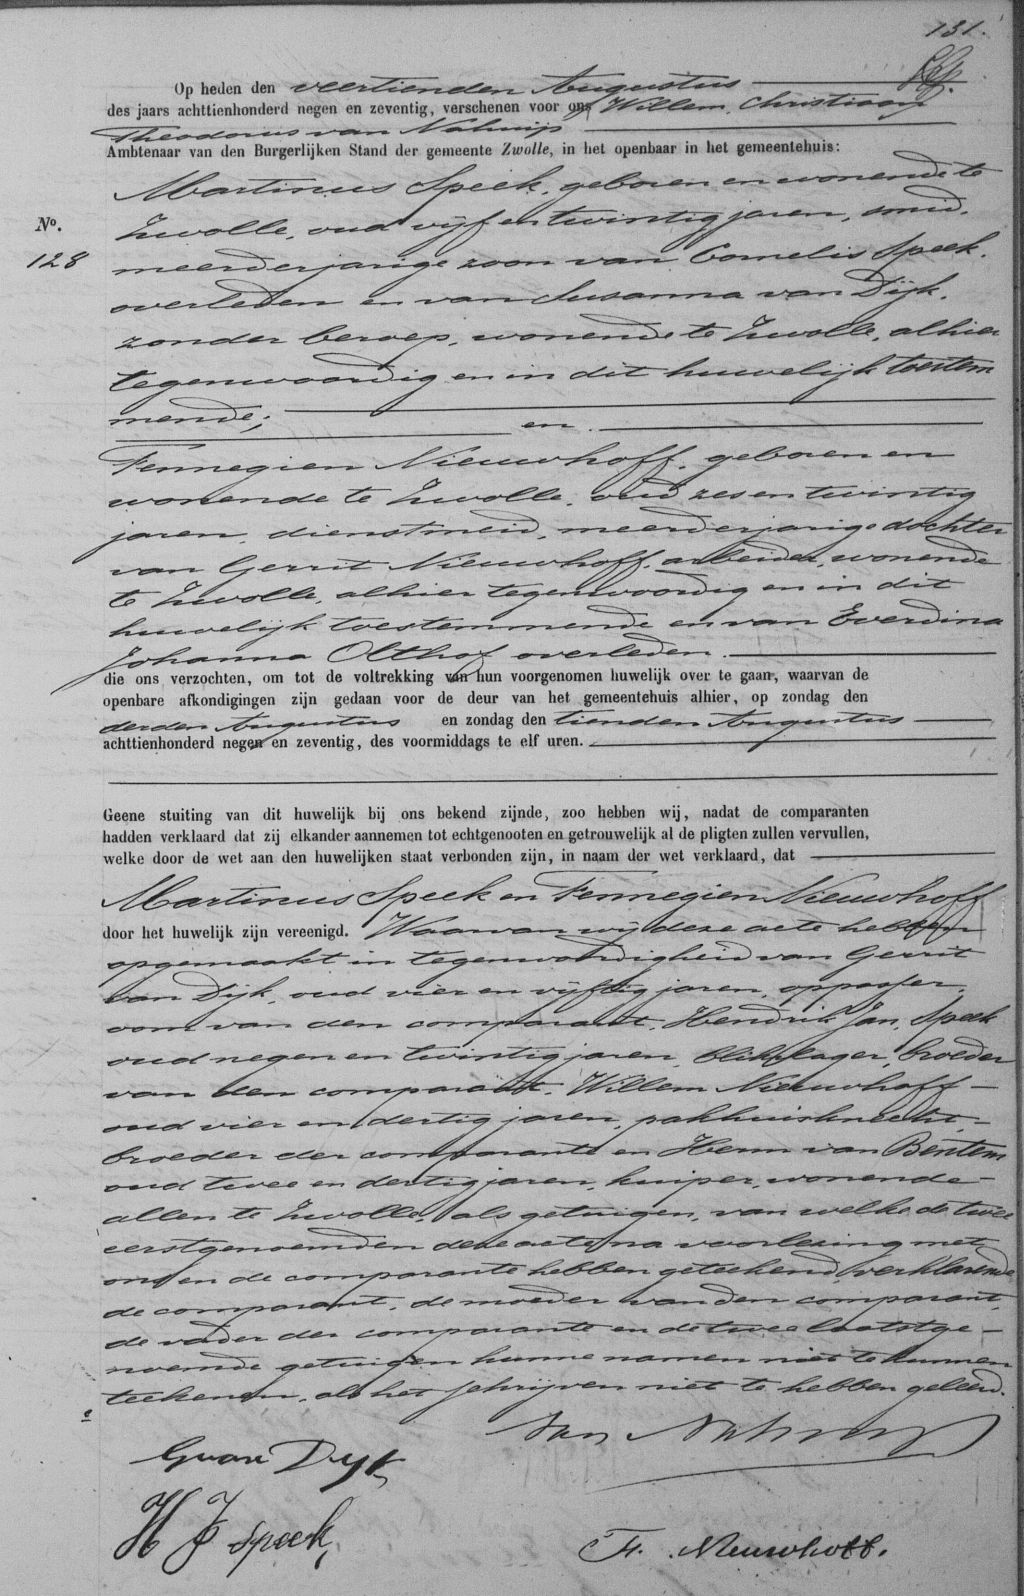 131.
Op heden den veertienden Augustus
des jaars achttienhonderd negen en zeventig, verschenen voor ons Willem Christiaan
Theodorus van Nahuijs
Ambtenaar van den Burgerlijken Stand der gemeente Zwolle, in het openbaar in het gemeentehuis:
Martinus Speek, geboren en wonende te
No.
Zwolle, oud vijf en twintig jaren, smid,
128
meerderjarige zoon van Cornelis Speek,
overleden en van Susanna van Dijk,
zonder beroep, wonende te Zwolle, alhier
tegenwoordig en in dit huwelijk toestem
mende;
en
Fennegien Nieuwhoff, geboren en
wonende te Zwolle, oud zes en twintig
jaren, dienstmeid, meerderjarige dochter
van Gerrit Nieuwhoff, arbeider, wonende
te Zwolle, alhier tegenwoordig en in dit
huwelijk toestemmende en van Everdina
Johanna Olthof overleden.
die ons verzochten, om tot de voltrekking van hun voorgenomen huwelijk over te gaan, waarvan de
openbare afkondigingen zijn gedaan voor de deur van het gemeentehuis alhier, op zondag den
derden Augustus en zondag den tienden Augustus
achttienhonderd negen en zeventig, des voormiddags te elf uren.
Geene stuiting van dit huwelijk bij ons bekend zijnde, zoo hebben wij, nadat de comparanten
hadden verklaard dat zij elkander aannemen tot echtgenooten en getrouwelijk al de pligten zullen vervullen,
welke door de wet aan den huwelijken staat verbonden zijn, in naam der wet verklaard, dat
Martinus Speek en Fennegien Nieuwhoff
door het huwelijk zijn vereenigd. Waarvan wij deze acte hebben
opgemaakt in tegenwoordigheid van Gerrit
van Dijk, oud vier en vijftig jaren, oppasser,
oom van den comparant, Hendrik Jan Speek
oud negen en twintig jaren, blikslager, broeder
van den comparant, Willem Nieuwhoff
oud vier en dertig jaren, pakhuisknecht,
broeder der comparante en Herm van Bentem
oud twee en dertig jaren, kuiper, wonende
allen te Zwolle, als getuigen, van welke de twee
eerstgenoemden deze acte na voorlezing met
ons en de comparante hebben geteekend, verklarende
de comparant, de moeder van den comparant,
de vader der comparante en de twee laatstge
noemde getuigen hunne namen niet te kunnen
teekenen, als het schrijven niet te hebben geleerd.
Van Nahuijs
G van Dijk
H J Speek,
F. Nieuwhoff.